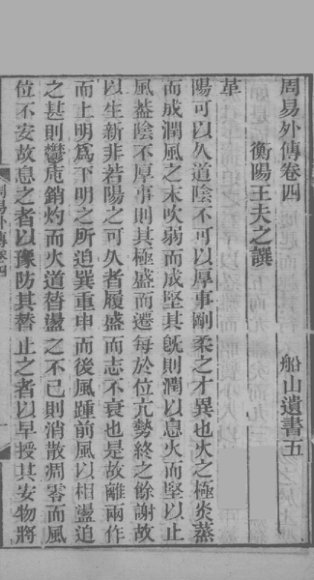 周易外傳卷四　船山遺書五
衡陽王夫之譔
革
陽可以久道陰不可以厚事剛柔之才異也火之極炎蒸
而成潤風之末吹弱而成堅其旣則潤以息火而堅以止
風葢陰不厚事則其極盛而遷每於位亢勢終之餘謝故
以生新非若陽之可久者履盛而志不衰也是故離兩作
而上明爲下明之所迫巽重申而後風踵前風以相盪迫
之甚則鬱庮銷灼而火道替盪之不已則消散凋零而風
位不安故息之者以豫防其替止之者以早授其安物將
周易外傳卷四
一